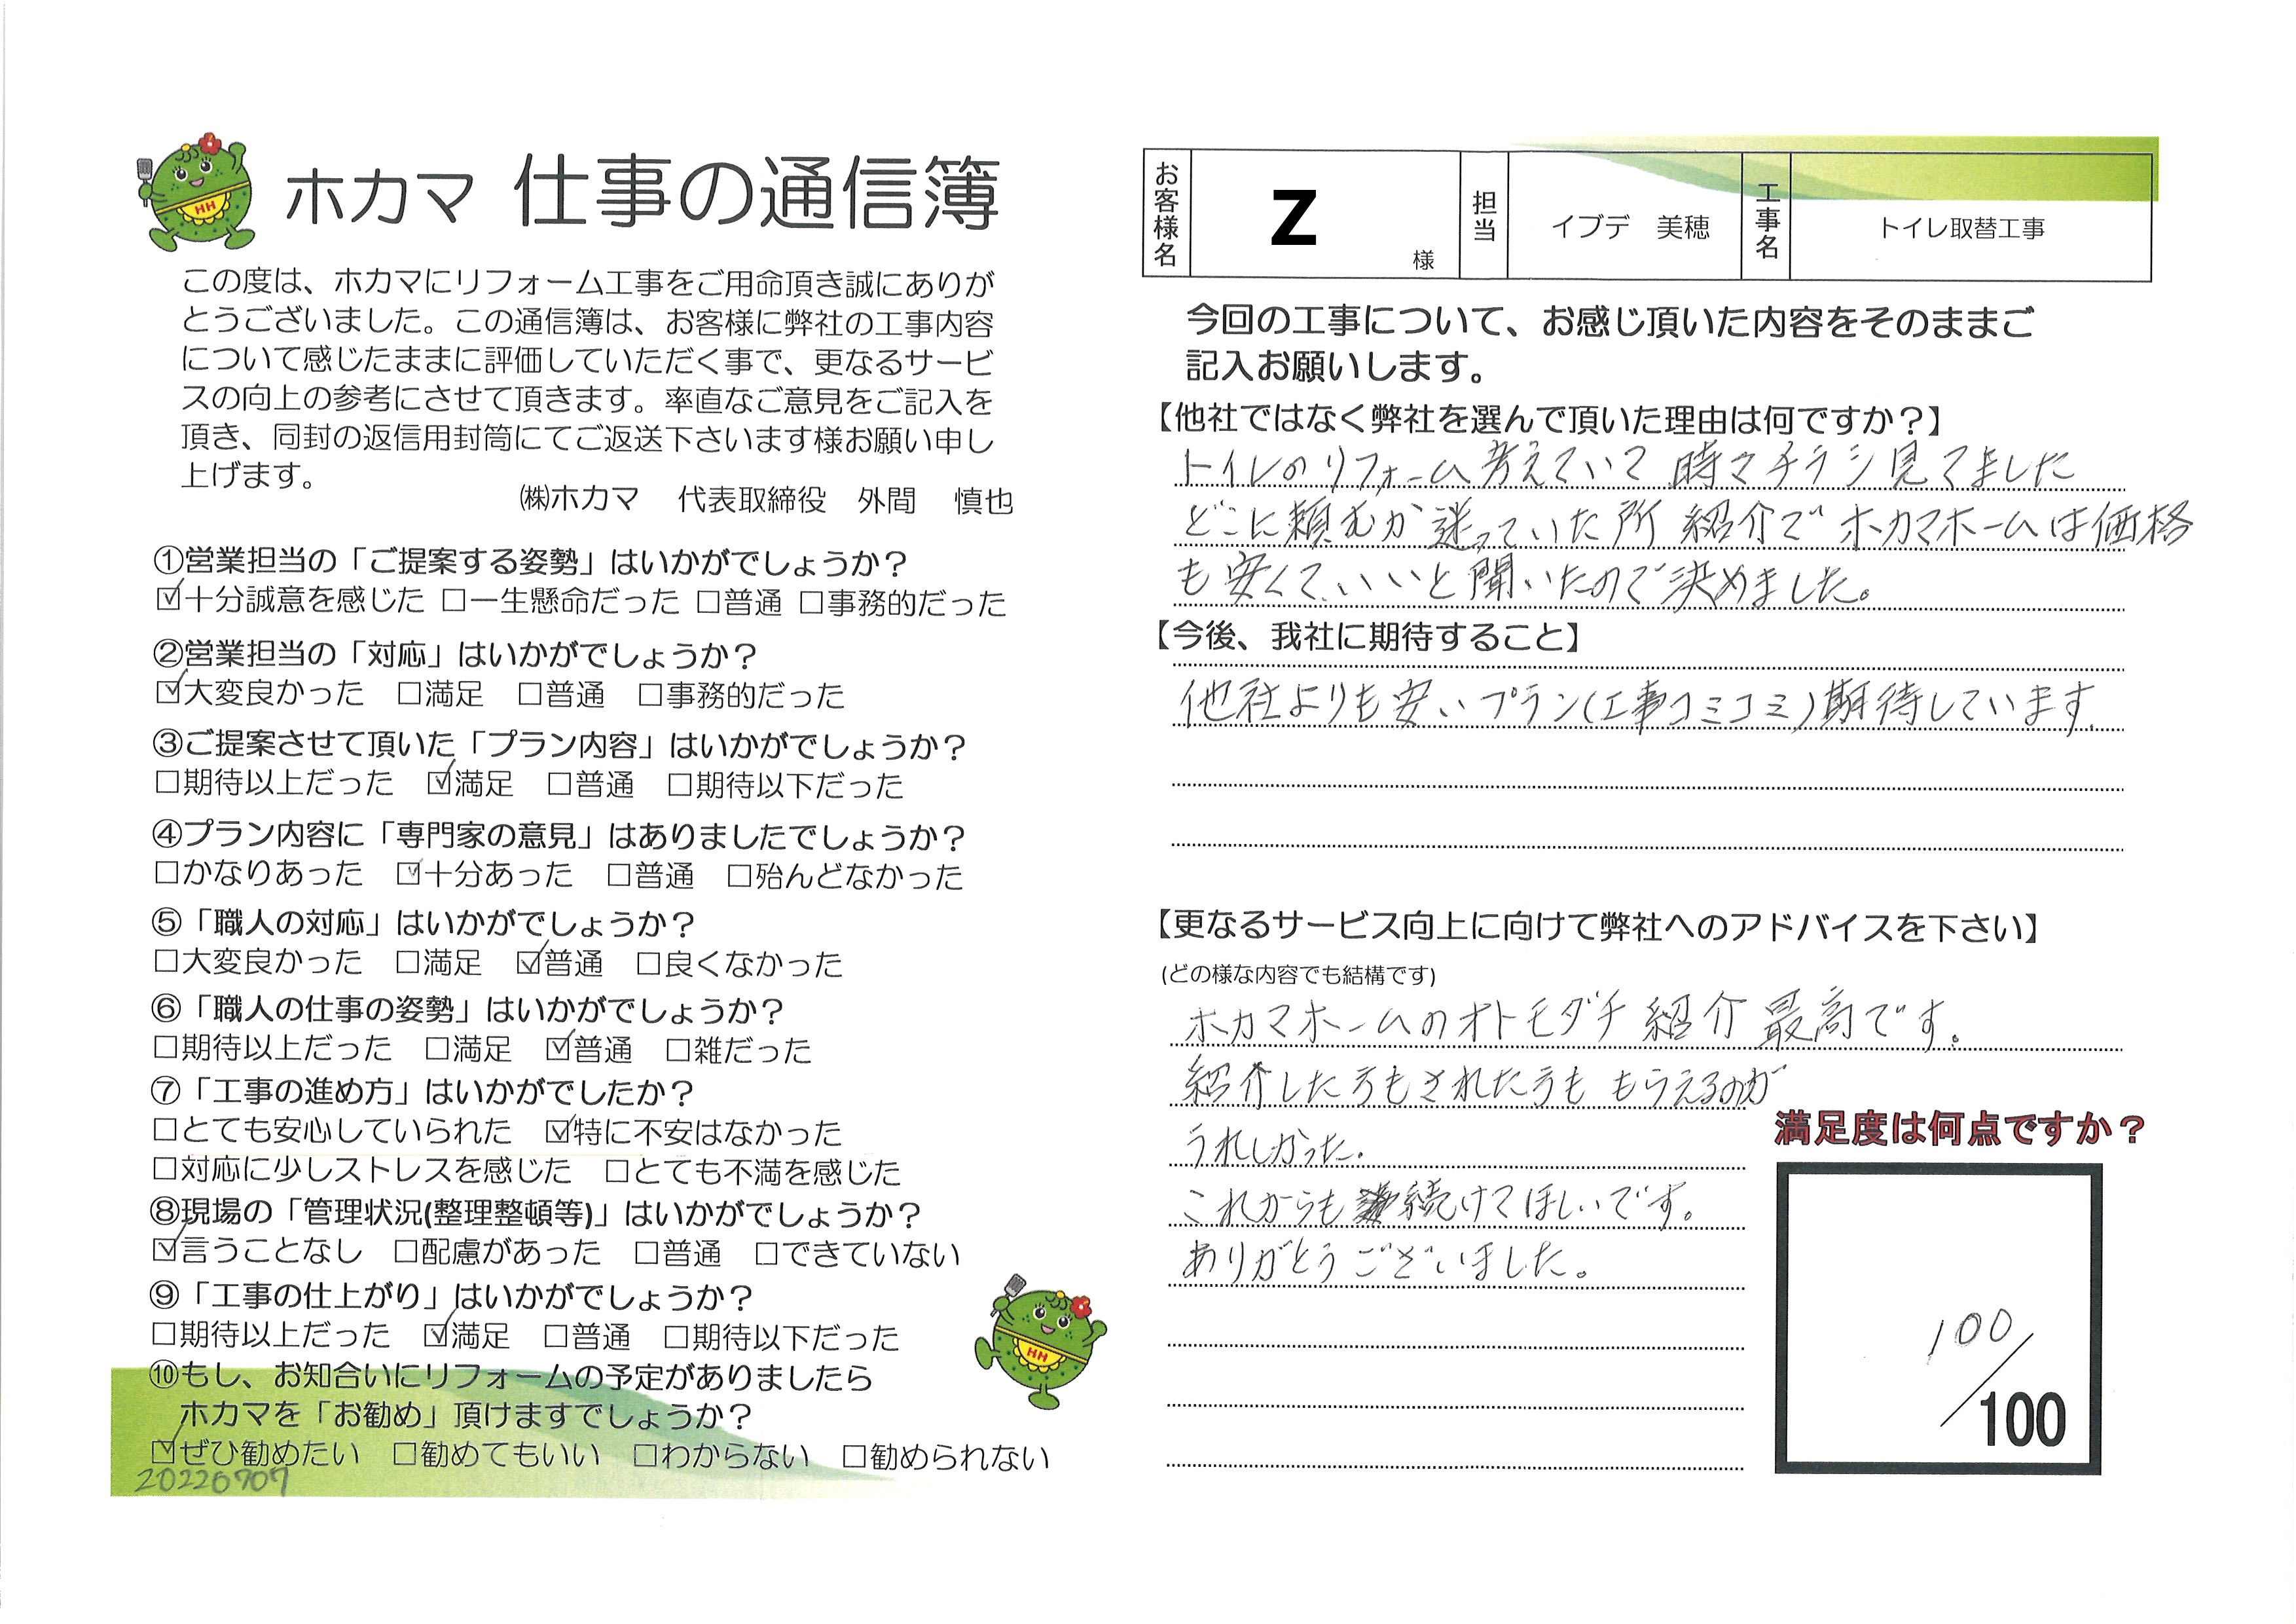 ホカマ 仕事の通信簿
この度は、ホカマにリフォーム工事をご用命頂き誠にありが
とうございました。この通信簿は、お客様に弊社の工事内容
について感じたままに評価していただく事で、更なるサービ
スの向上の参考にさせて頂きます。率直なご意見をご記入を
頂き、同封の返信用封筒にてご返送下さいます様お願い申し
上げます。
㈱ホカマ 代表取締役 外間 慎也
①営業担当の「ご提案する姿勢」はいかがでしょうか？
☑十分誠意を感じた □一生懸命だった □普通 □事務的だった
②営業担当の「対応」はいかがでしょうか？
☑大変良かった □満足 □普通 □事務的だった
③ご提案させて頂いた「プラン内容」はいかがでしょうか？
□期待以上だった ☑満足 □普通 □期待以下だった
④プラン内容に「専門家の意見」はありましたでしょうか？
□かなりあった ☑十分あった □普通 □殆んどなかった
⑤「職人の対応」はいかがでしょうか？
□大変良かった □満足 ☑普通 □良くなかった
⑥「職人の仕事の姿勢」はいかがでしょうか？
□期待以上だった □満足 ☑普通 □雑だった
⑦「工事の進め方」はいかがでしたか？
□とても安心していられた ☑特に不安はなかった
□対応に少しストレスを感じた □とても不満を感じた
⑧現場の「管理状況(整理整頓等)」はいかがでしょうか？
☑言うことなし □配慮があった □普通 □できていない
⑨「工事の仕上がり」はいかがでしょうか？
□期待以上だった ☑満足 □普通 □期待以下だった
⑩もし、お知合いにリフォームの予定がありましたら
ホカマを「お勧め」頂けますでしょうか？
☑ぜひ勧めたい □勧めてもいい □わからない □勧められない
20220707
HH
HH
お客様名 Z 様 担当 イブデ 美穂 工事名 トイレ取替工事
今回の工事について、お感じ頂いた内容をそのままご
記入お願いします。
【他社ではなく弊社を選んで頂いた理由は何ですか？】
トイレのリフォーム考えていて 時々チラシ見てました
どこに頼むか迷っていた所 紹介でホカマホームは価格
も安くて、いいと聞いたので決めました。
【今後、我社に期待すること】
他社よりも安いプラン(工事コミコミ)期待しています。
【更なるサービス向上に向けて弊社へのアドバイスを下さい】
(どの様な内容でも結構です)
ホカマホームのオトモダチ紹介最高です。
紹介した方もされた方も もらえるのが
うれしかった.
これからも 続けてほしいです。
ありがとうございました。
満足度は何点ですか？
100/100